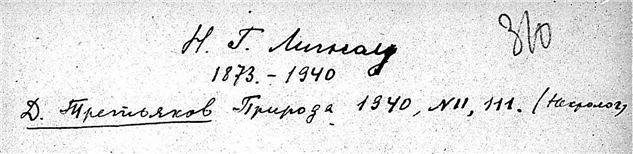 Н. Г. Лигнау
1873.-1940
Д. Третьяков Природа 1940, N11, 111. (Некролог)